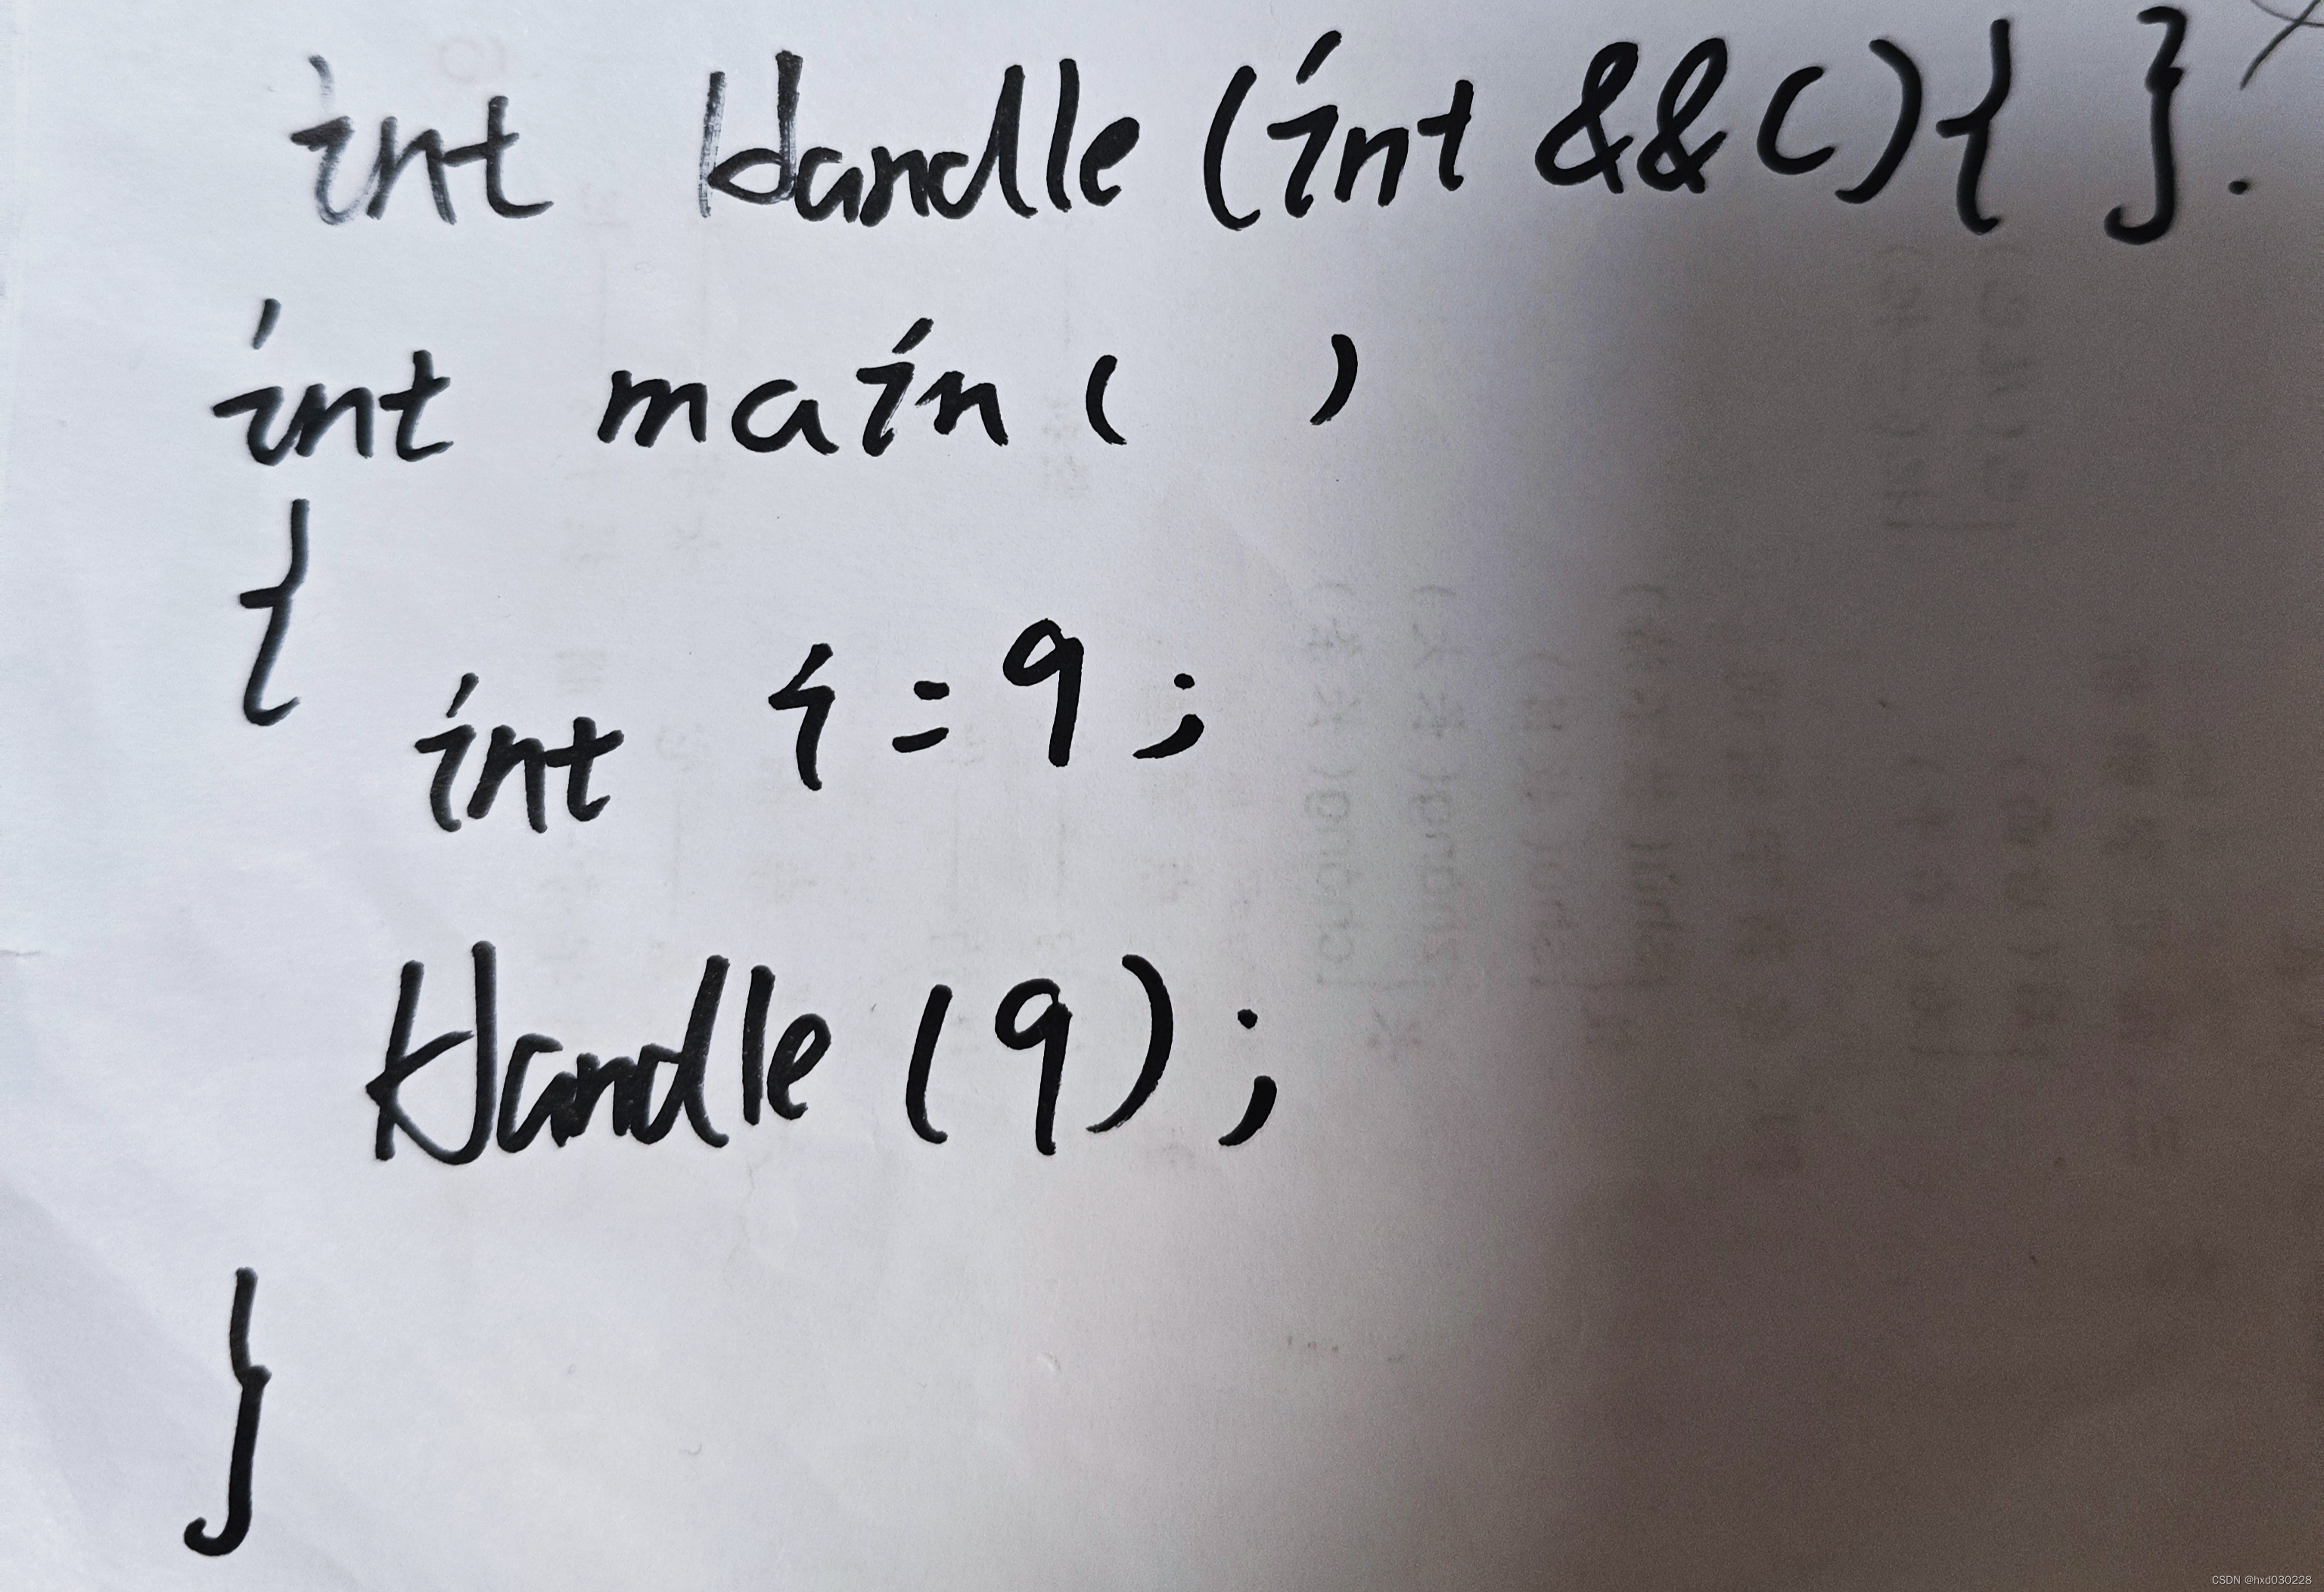 int Handle (int &&C){ }.
int main ( )
{
int i = 9 ;
Handle (9) ;
}
CSDN @hxd030228